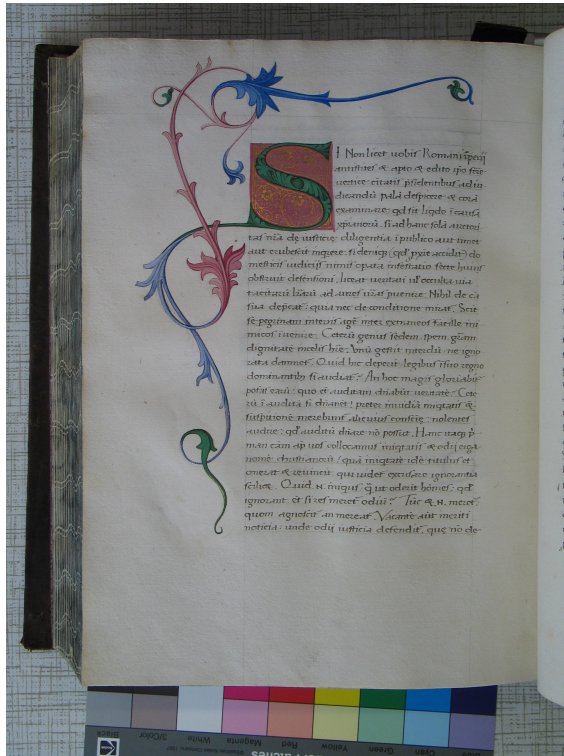 SI Non licet uobis Romani ĩperij
antistites & apto & edito ipo ferè
uertice ciuitatis p̃sidentibus ad iu
dicandũ palã despicere & corã
examinare: qd sit liqdo ĩ causa
xp̃ianorũ. si ad hanc solã auctori
tas ur̃a de iusticie diligentia ĩ publico aut timet
aut erubescit inqrere. si deniq;
mesticis iudicijs nimis opata infestatio secte huius
obstruit defensioni, liceat ueritati uł occulta uia
tacitarũ lr̃arũ ad aures ur̃as puenire. Nihil de cã
sua deprecat: quia nec de conditione mirat. Scit
se peregrinam interris agere inter extraneos facile ini
micos inuenire. Ceterũ genus sedem, spem gr̃am
dignitatẽ in celis h̃re. Vnũ gestit interdũ ne igno
rata damnet. Quid hic deperit legibus ĩ suo regno
dominantib; si audiat? An hoc magis gloriabit
potas earũ: quo et auditam dãnabũt ueritatẽ? Cete
rũ ĩ auditã si dãnẽt: preter inuidiã iniqtatis &
suspitionẽ merebunt alicuius consciẽ: nolentes
audire: qd auditũ dãnare nõ possint. Hanc itaq; p
man cãm ap̃ uos collocamus iniqtatis & odij erga
nomẽ christianorũ: quã iniqtatẽ idẽ titulus et
onerat & reuincit qui uidet excusare ignorantia
scilic&. Quid .N. iniqus q̃ ut oderit hom̃es: qd
ignorant et si res meret odiũ? Tũc &.N. meret:
quom agnoscit an mereat. Vacante aut meriti
noticia: unde odij iusticia defendit, que nõ de
Black
3/Color
White
Magenta
Red
Yellow
Green
Cyan
Blue